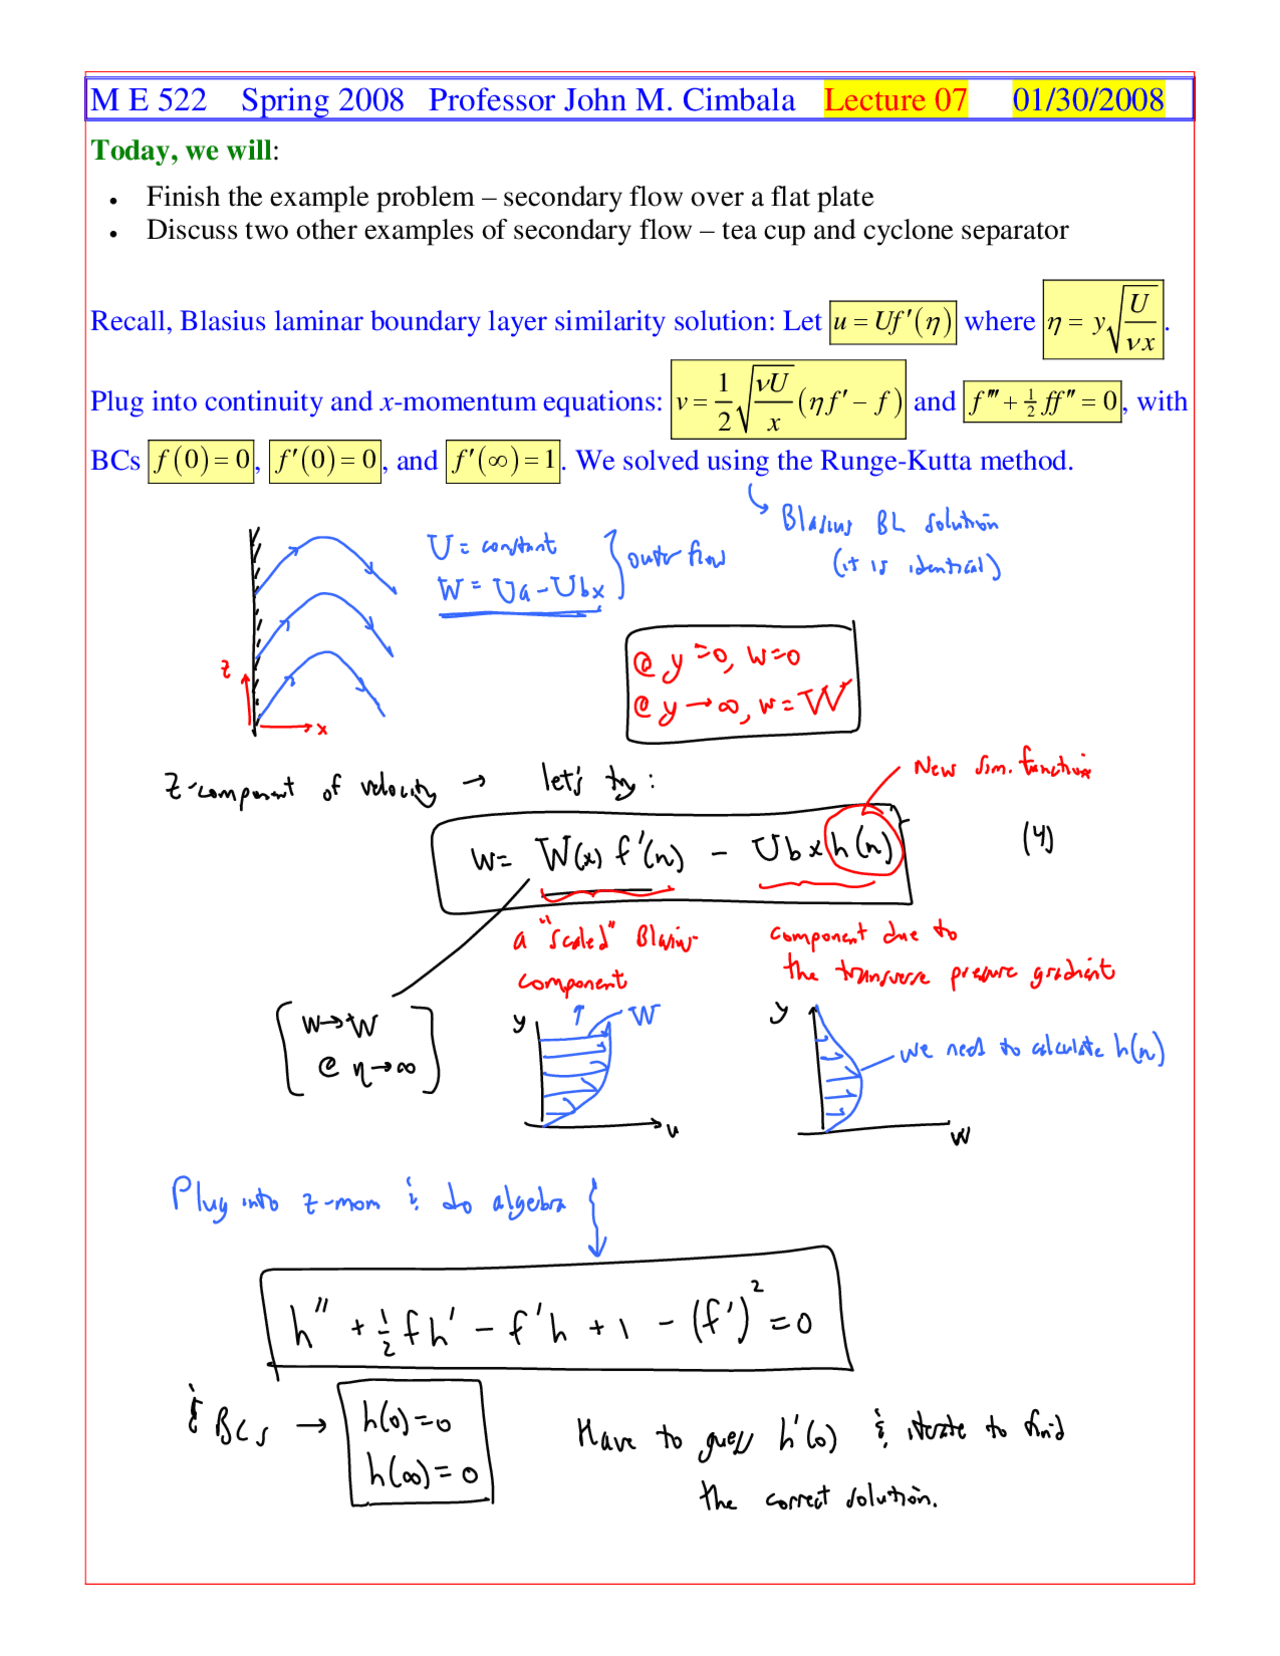 M E 522 Spring 2008 Professor John M. Cimbala Lecture 07 01/30/2008
Today, we will:
• Finish the example problem – secondary flow over a flat plate
• Discuss two other examples of secondary flow – tea cup and cyclone separator
Recall, Blasius laminar boundary layer similarity solution: Let u = Uf′(η) where η = y√(U/νx).
Plug into continuity and x-momentum equations: v = 1/2 √(νU/x) (ηf′ − f) and f‴ + ½ ff″ = 0, with
BCs f(0) = 0, f′(0) = 0, and f′(∞) = 1. We solved using the Runge-Kutta method.
↳ Blasius BL solution
(it is identical)
U = constant
W = Ua − Ubx
} outer flow
@ y = 0, w = 0
@ y → ∞, w = W
z
x
z-component of velocity → let's try:
New sim. function
w = W(x) f′(η) − Ubx h(η)
(4)
a "scaled" Blasius
component
component due to
the transverse pressure gradient
[w → W
@ η → ∞]
y
W
u
y
we need to calculate h(η)
w
Plug into z-mom & do algebra
h″ + ½ f h′ − f′h + 1 − (f′)² = 0
& BCs → h(0) = 0
h(∞) = 0
Have to guess h′(0) & iterate to find
the correct solution.